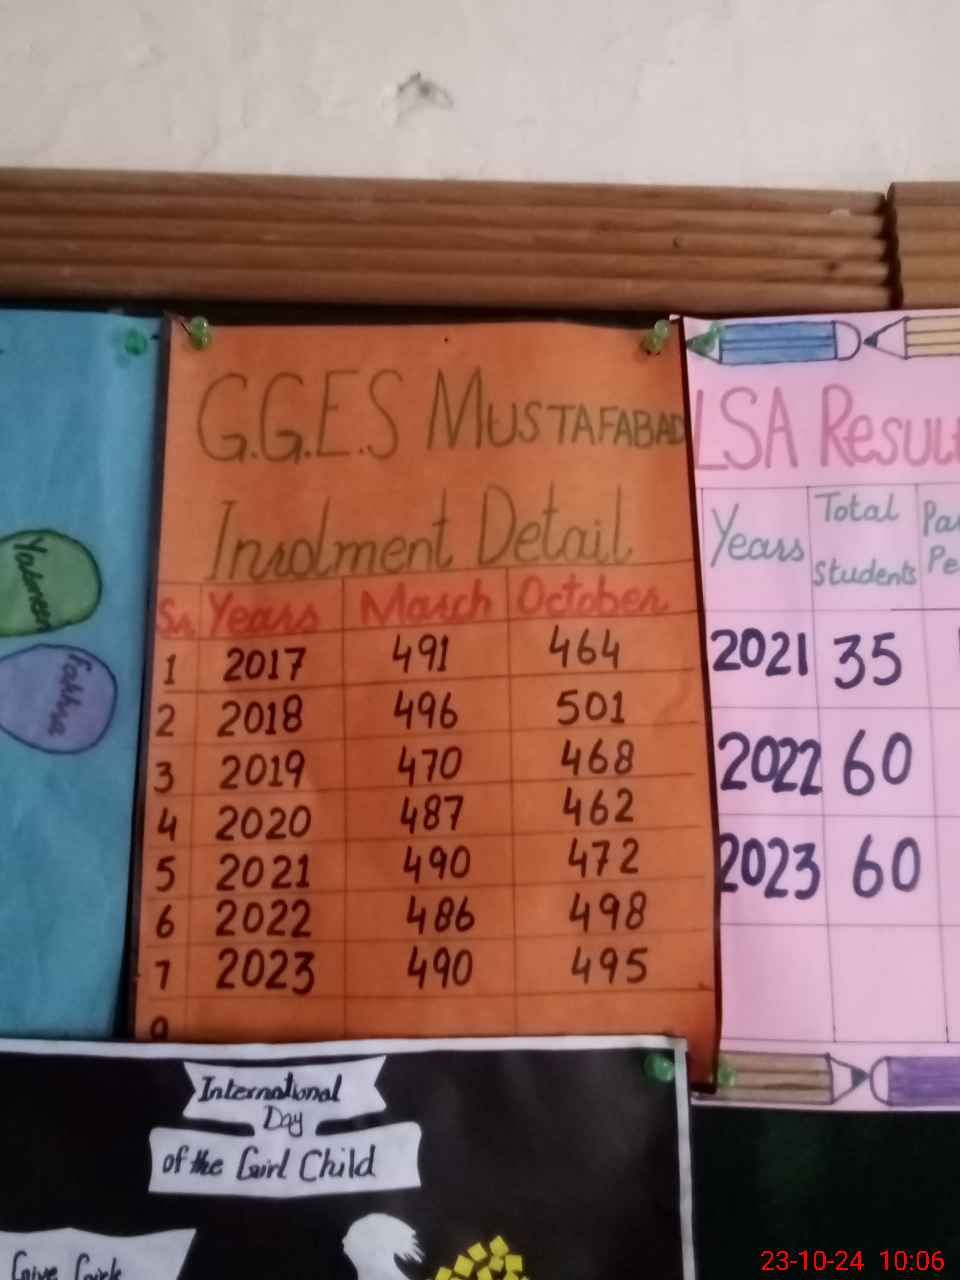 G.G.E.S MUSTAFABAD
Inrolment Detail
Sr Years March October
1 2017 491 464
2 2018 496 501
3 2019 470 468
4 2020 487 462
5 2021 490 472
6 2022 486 498
7 2023 490 495
LSA RESUL
Years Total Students
2021 35
2022 60
2023 60
International
Day
of the Girl Child
Give Girls
23-10-24 10:06